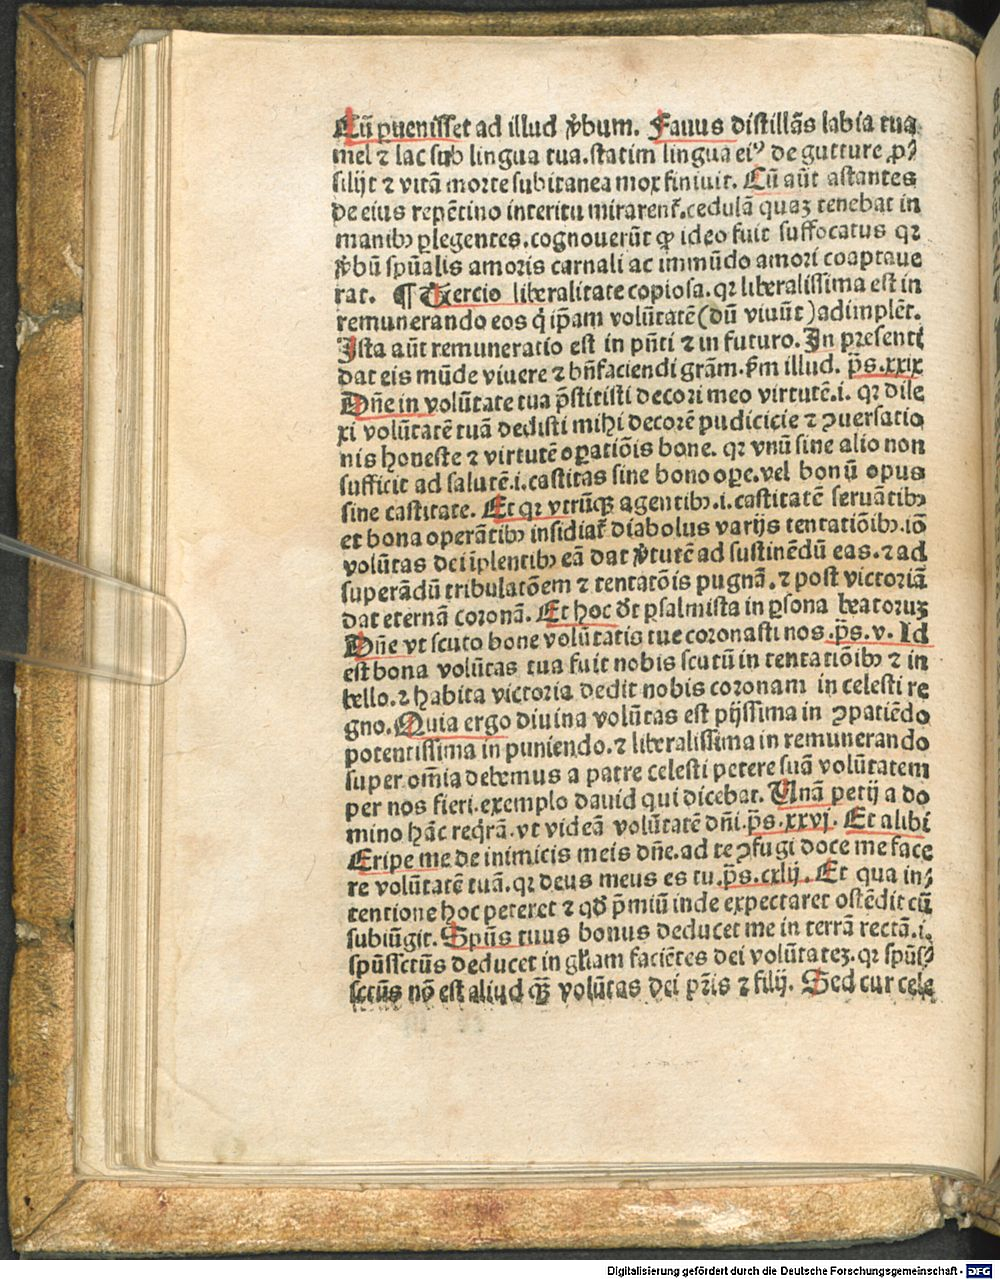 Cū ꝑuenisset ad illud v̾bum. Fauus distillās labia tua
mel ⁊ lac sub lingua tua. statim lingua eiꝰ de gutture ꝓ⸗
silijt ⁊ vitā morte subitanea mox finiuit. Cū aūt astantes
de eius repētino interitu mirarent᷑. cedulā quaꝫ tenebat in
manibꝫ ꝑlegentes. cognouerūt ꝙ ideo fuit suffocatus qꝛ
v̾bū spūalis amoris carnali ac immūdo amori coaptaue
rat. ¶ Tercio liberalitate copiosa. qꝛ liberalissima est in
remunerando eos q̇ ip̄am volūtatē (dū viuūt) adimplēt.
Ista aūt remuneratio est in pn̄ti ⁊ in futuro. In presenti
dat eis mūde viuere ⁊ bn̄faciendi grām. fm̄ illud. p̄s. xxix
Dn̄e in volūtate tua p̄stitisti decori meo virtutē. i. qꝛ dile
xi volūtatē tuā dedisti mihi decorē pudicicie ⁊ ꝯuersatio
nis honeste ⁊ virtutē oꝑatiōis bone. qꝛ vnū sine alio non
sufficit ad salutē. i. castitas sine bono oꝑe. vel bonū opus
sine castitate. Et qꝛ vtrūqꝫ agentibꝫ. i. castitatē seruātibꝫ
et bona operātibꝫ insidiat᷑ diabolus varijs tentatiōibꝫ. iō
volūtas dei īplentibꝫ eā dat v̾tutē ad sustinēdū eas. ⁊ ad
superādū tribulatōem ⁊ tentatōis pugnā. ⁊ post victoriā
dat eternā coronā. Et hoc dt̄ psalmista in ꝑsona beatoruꝫ
Dn̄e vt scuto bone volūtatis tue coronasti nos. p̄s. v. Id
est bona volūtas tua fuit nobis scutū in tentatiōibꝫ ⁊ in
bello. ⁊ habita victoria dedit nobis coronam in celesti re
gno. Quia ergo diuina volūtas est pijssima in ꝯpatiēdo
potentissima in puniendo. ⁊ liberalissima in remunerando
super om̄ia debemus a patre celesti petere suā volūtatem
per nos fieri. exemplo dauid qui dicebat. Unā petij a do
mino hāc reqrā. vt videā volūtatē dn̄i. p̄s. xxvj. Et alibi
Eripe me de inimicis meis dn̄e. ad te ꝯfugi doce me face
re volūtatē tuā. qꝛ deus meus es tu. p̄s. cxlij. Et qua in⸗
tentione hoc peteret ⁊ qd̄ p̄miū inde expectaret ostēdit cū
subiūgit. Spūs tuus bonus deducet me in terrā rectā. i.
spūssctūs deducet in gl̄iam faciētes dei volūtateꝫ. qꝛ spūs⸗
sctūs nō est aliud qꝫ̄ volūtas dei pr̄is ⁊ filij. Sed cur cele
Digitalisierung gefördert durch die Deutsche Forschungsgemeinschaft - DFG